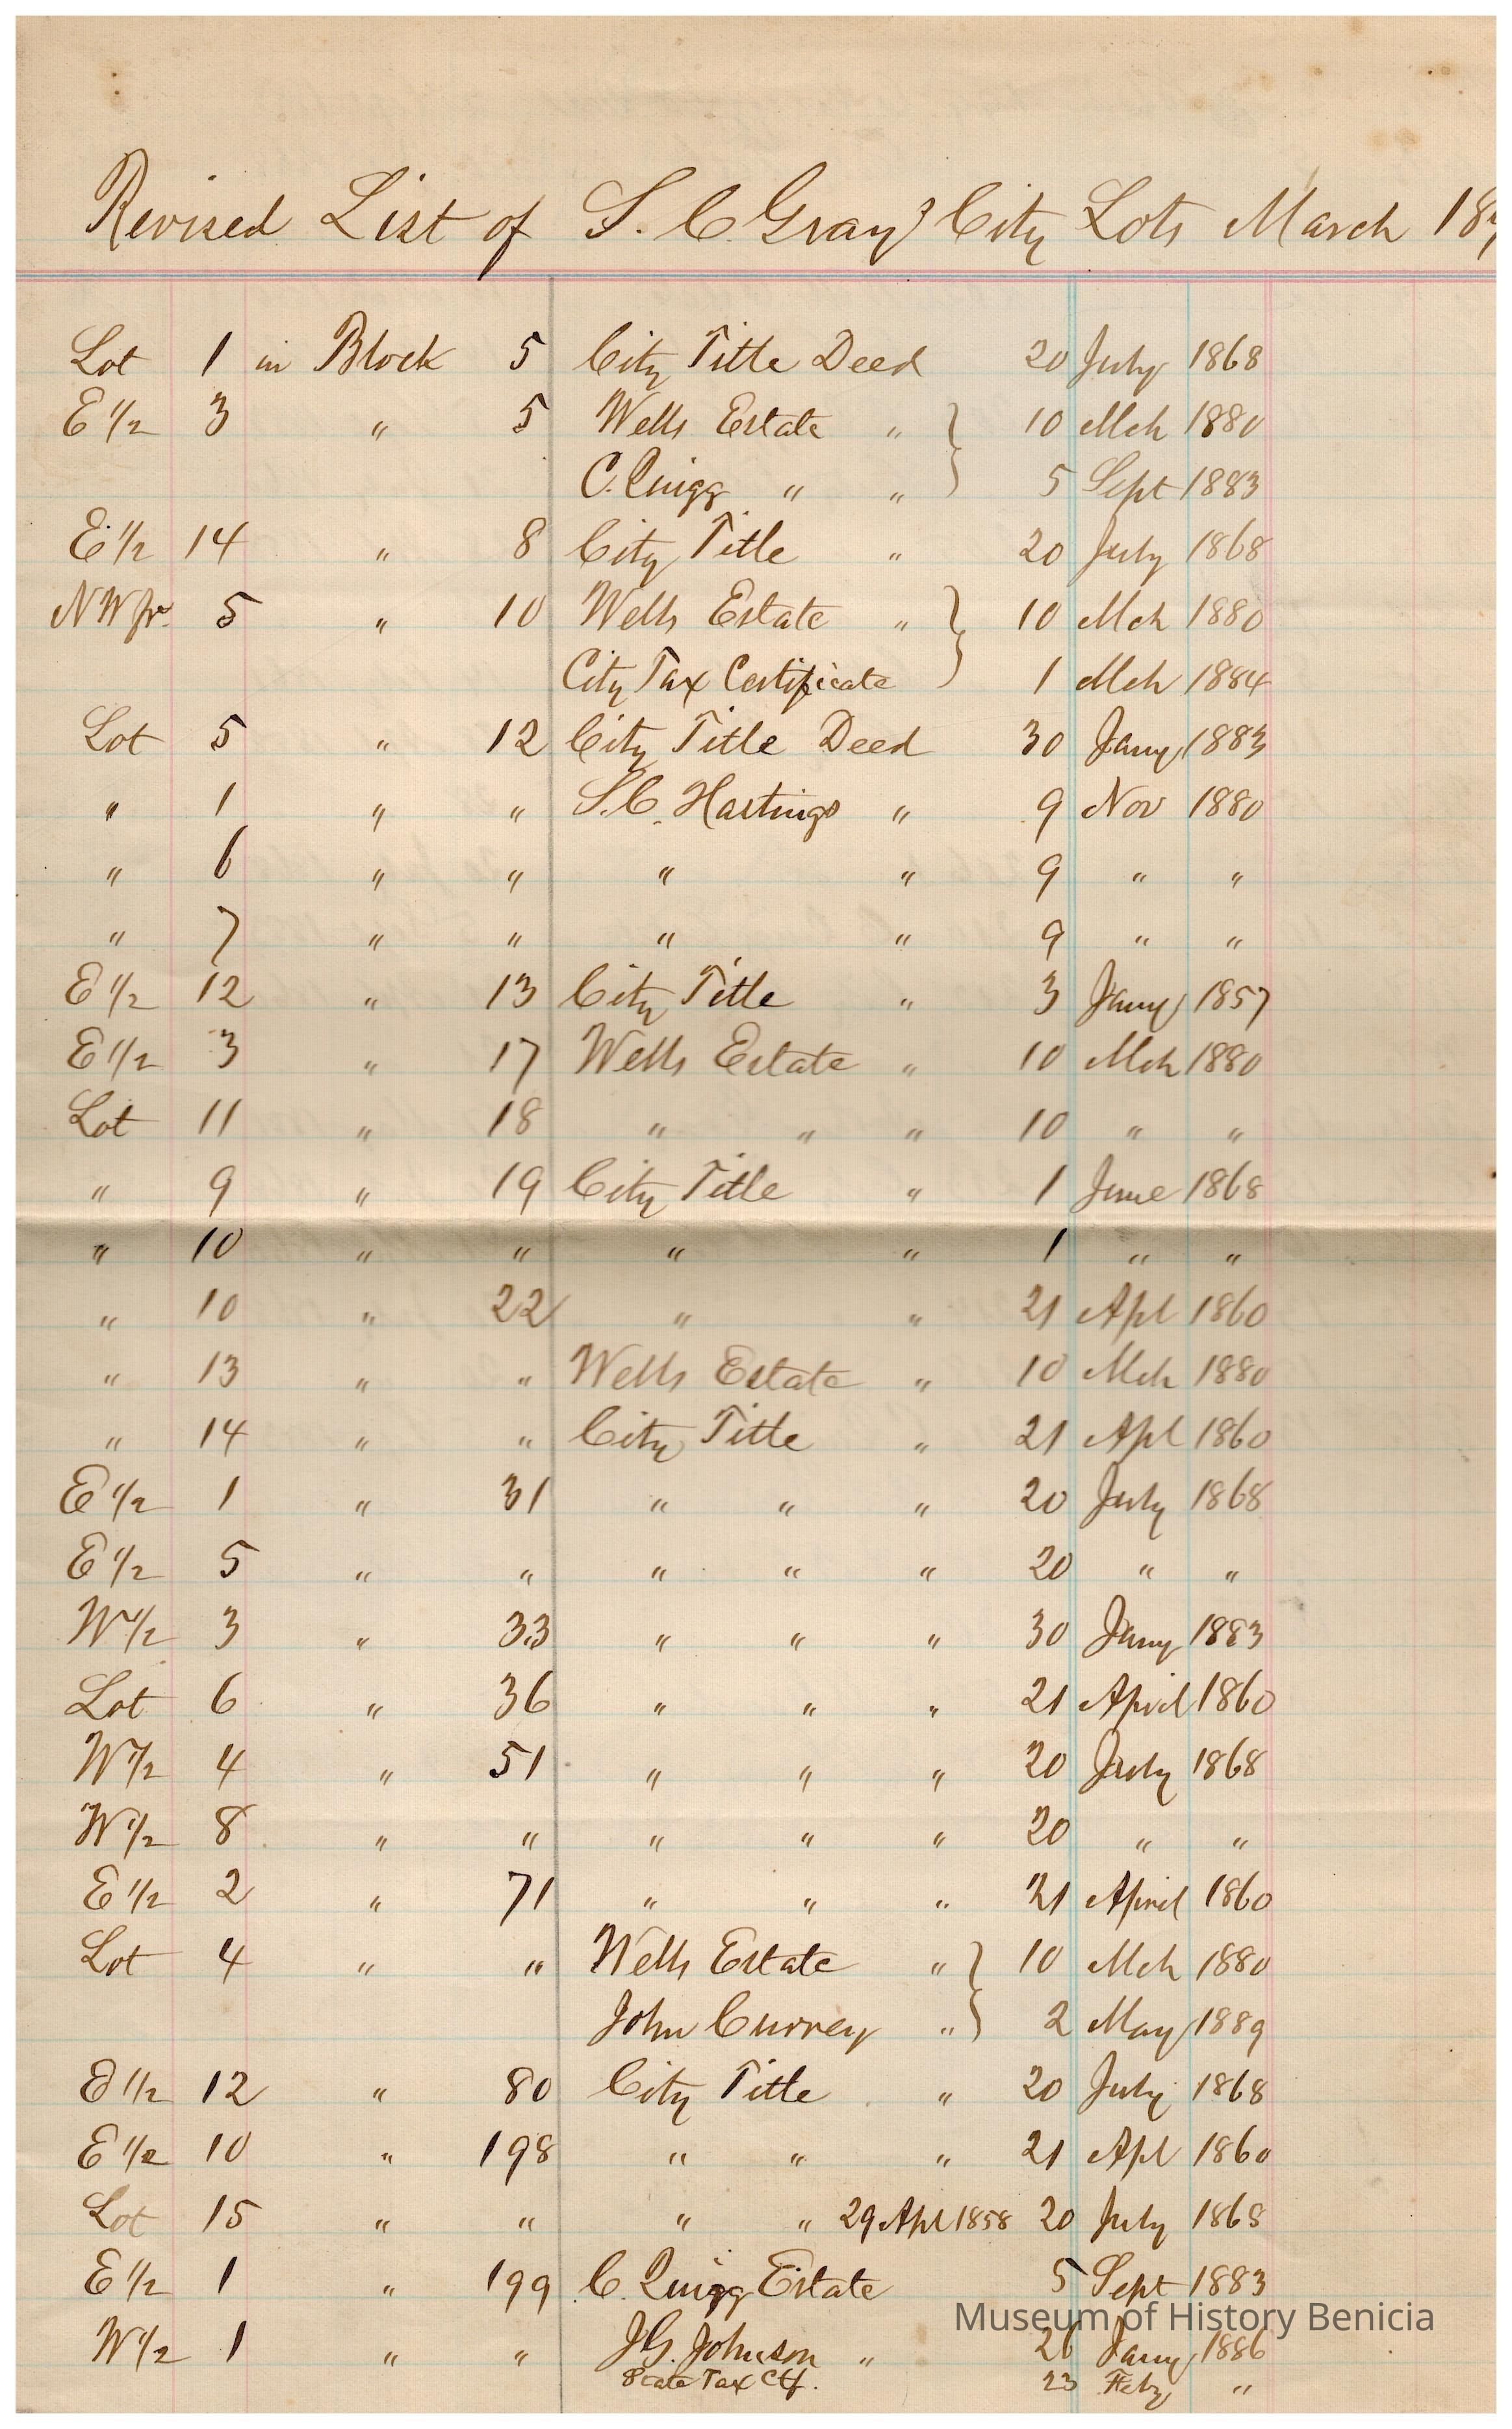 Revised List of S. C. Gray's City Lots March 18
Lot 1 in Block 5 City Title Deed 20 July 1868
E 1/2 3 " 5 Wells Estate " } 10 Mch 1880
C. Quigg " " } 5 Sept 1883
E 1/2 14 " 8 City Title " 20 July 1868
NW fr. 5 " 10 Wells Estate " } 10 Mch 1880
City Tax Certificate } 1 Mch 1884
Lot 5 " 12 City Title Deed 30 Jany 1883
" 1 " " S. C. Hastings " 9 Nov 1880
" 6 " " " " 9 " "
" 7 " " " " 9 " "
E 1/2 12 " 13 City Title " 3 Jany 1857
E 1/2 3 " 17 Wells Estate " 10 Mch 1880
Lot 11 " 18 " " " 10 " "
" 9 " 19 City Title " 1 June 1868
" 10 " " " " 1 " "
" 10 " 22 " " 21 Apl 1860
" 13 " " Wells Estate " 10 Mch 1880
" 14 " " City Title " 21 Apl 1860
E 1/2 1 " 31 " " " 20 July 1868
E 1/2 5 " " " " " 20 " "
W 1/2 3 " 33 " " " 30 Jany 1883
Lot 6 " 36 " " " 21 April 1860
W 1/2 4 " 51 " " " 20 July 1868
W 1/2 8 " " " " " 20 " "
E 1/2 2 " 71 " " " 21 April 1860
Lot 4 " " Wells Estate " } 10 Mch 1880
John Currey " } 2 May 1889
E 1/2 12 " 80 City Title " 20 July 1868
E 1/2 10 " 198 " " " 21 Apl 1860
Lot 15 " " " " 29 Apl 1858 20 July 1868
E 1/2 1 " 199 C. Quigg Estate 5 Sept 1883
Museum of History Benicia
W 1/2 1 " " J. G. Johnson " 26 Jany 1886
State Tax Ctf. 23 Feby "